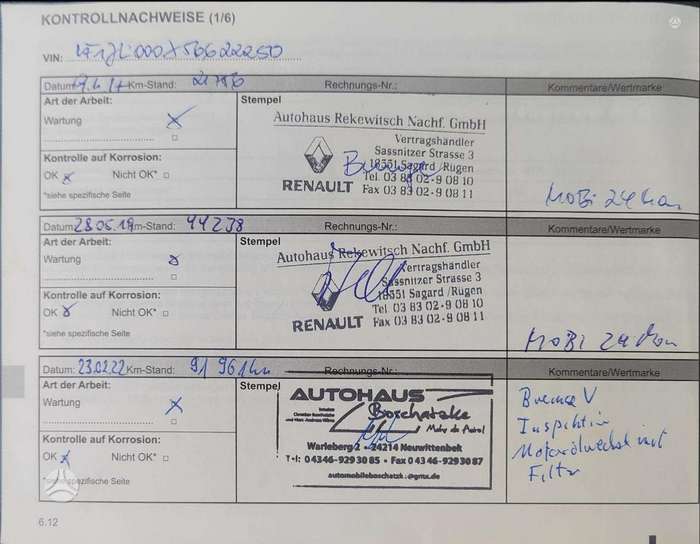 KONTROLLNACHWEISE (1/6)
VIN:
Datum: Km-Stand: Rechnungs-Nr.: Kommentare/Wertmarke
Art der Arbeit: Stempel
Wartung x
Kontrolle auf Korrosion:
OK x Nicht OK* □
*siehe spezifische Seite
Autohaus Rekewitsch Nachf. GmbH
Vertragshändler
Sassnitzer Strasse 3
18551 Sagard /Rügen
Tel. 03 83 02-9 08 10
RENAULT Fax 03 83 02-9 08 11
MOBI 24
Datum: 28.05.19 Km-Stand: 44238 Rechnungs-Nr.: Kommentare/Wertmarke
Art der Arbeit: Stempel
Wartung x
Kontrolle auf Korrosion:
OK x Nicht OK* □
*siehe spezifische Seite
Autohaus Rekewitsch Nachf. GmbH
Vertragshändler
Sassnitzer Strasse 3
18551 Sagard /Rügen
Tel. 03 83 02-9 08 10
RENAULT Fax 03 83 02-9 08 11
MOBI 24
Datum: 23.02.22 Km-Stand: 91961km Rechnungs-Nr.: Kommentare/Wertmarke
Art der Arbeit: Stempel
Wartung x
Kontrolle auf Korrosion:
OK x Nicht OK* □
*siehe spezifische Seite
AUTOHAUS
Boschatzke
Warleberg 2 - 24214 Neuwittenbek
T+I: 04346-9293085 • Fax 04346-9293087
Inspektion
Motorölwechsel mit
Filter
6.12